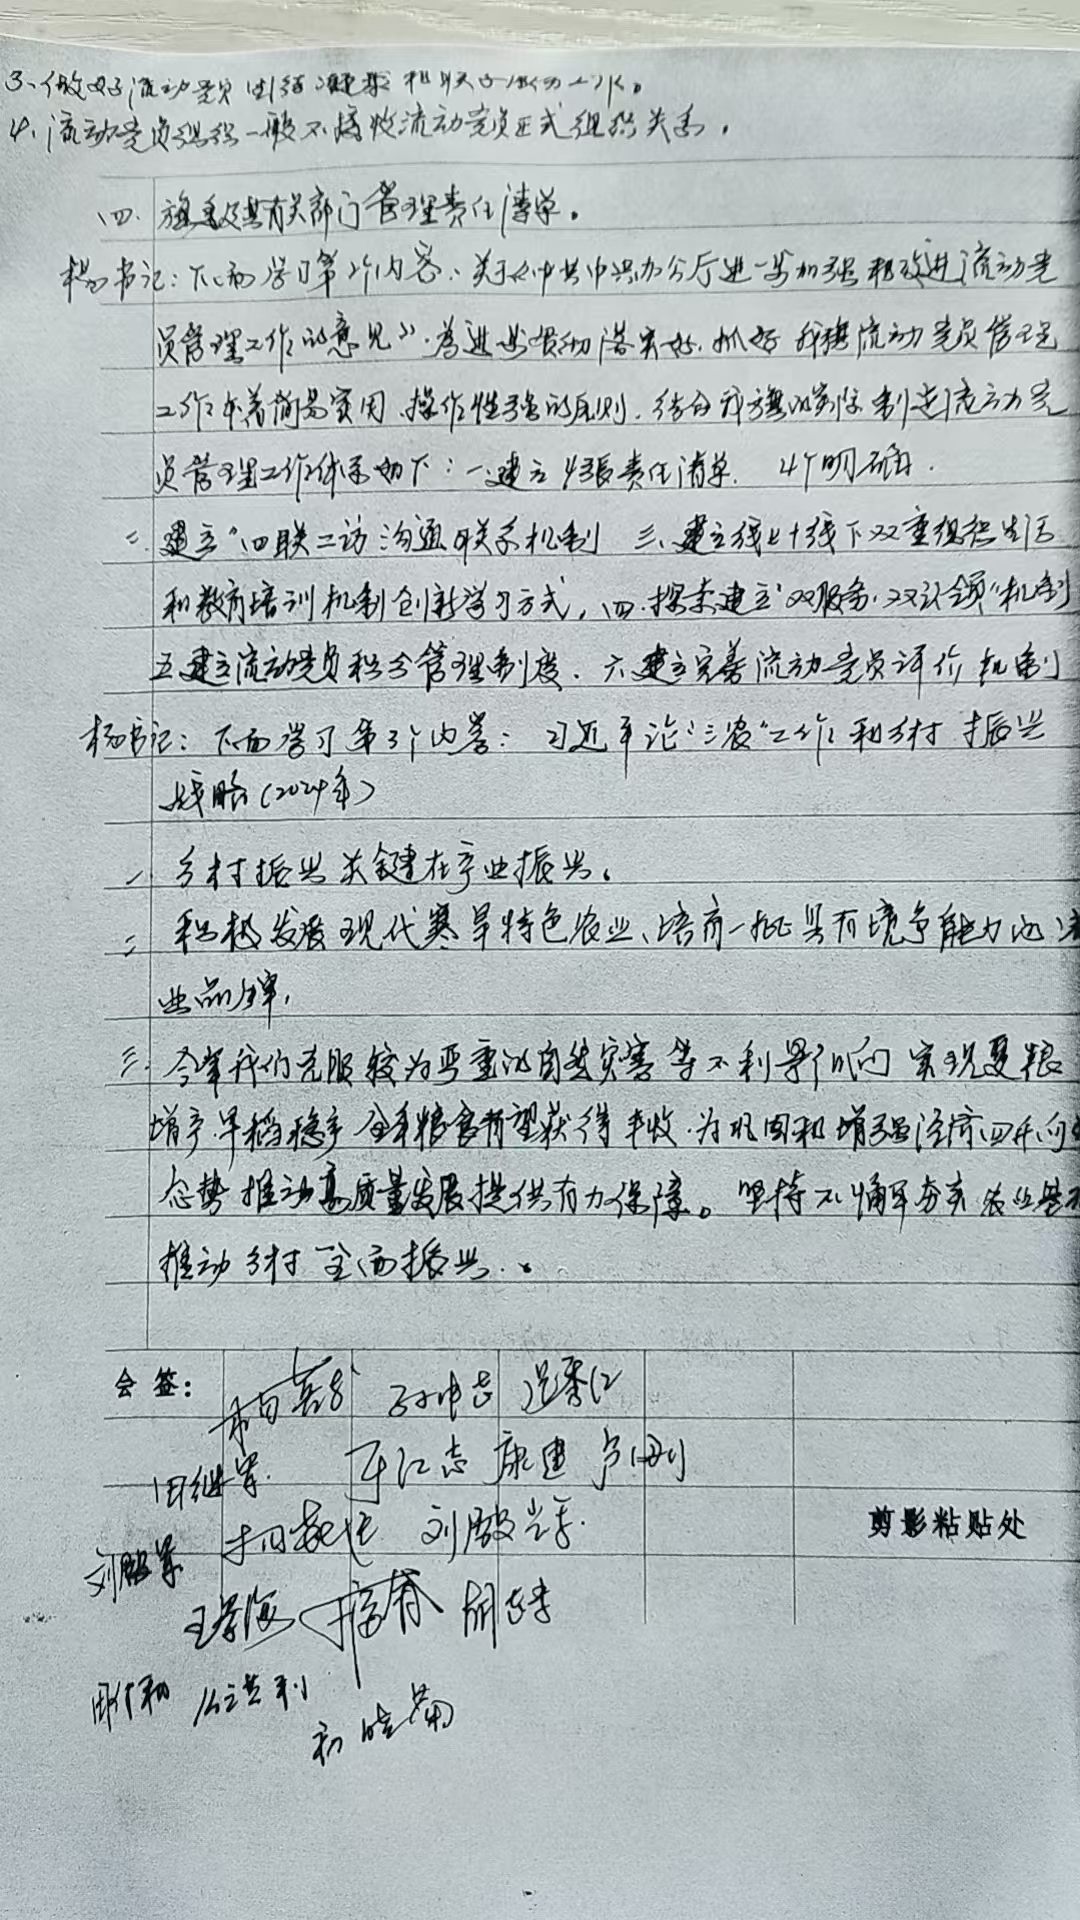 3、做好流动党员
4、流动党员组织一般不接收流动党员正式组织关系。
四、旗直及其有关部门管理责任清单。
杨书记：下面学习第2个内容、关于《中共中央办公厅进一步加强和改进流动党
员管理工作的意见》.为进一步贯彻落实好.抓好我旗流动党员管理
工作本着简易实用、操作性强的原则、结合我旗的实际制定流动党
员管理工作体系如下：一、建立4张责任清单、4个明确.
二、建立"四联二访沟通联系机制 三、建立线上+线下双重组织生活
和教育培训机制创新学习方式，四、探索建立"双服务、双认领"机制
五建立流动党员积分管理制度、六、建立完善流动党员评价机制
杨书记：下面学习第3个内容：习近平论"三农"工作和乡村振兴
战略(2024年)
一、乡村振兴关键在产业振兴。
二 积极发展现代寒旱特色农业、培育一批具有竞争能力的
业品牌，
三、今年我们克服较为严重的自然灾害等不利影响实现夏粮
增产早稻稳产全年粮食有望获得丰收.为巩固和增强经济回升向
态势推动高质量发展提供有力保障。坚持不懈夯实农业基
推动乡村全面振兴.。
会签：
康建
剪影粘贴处